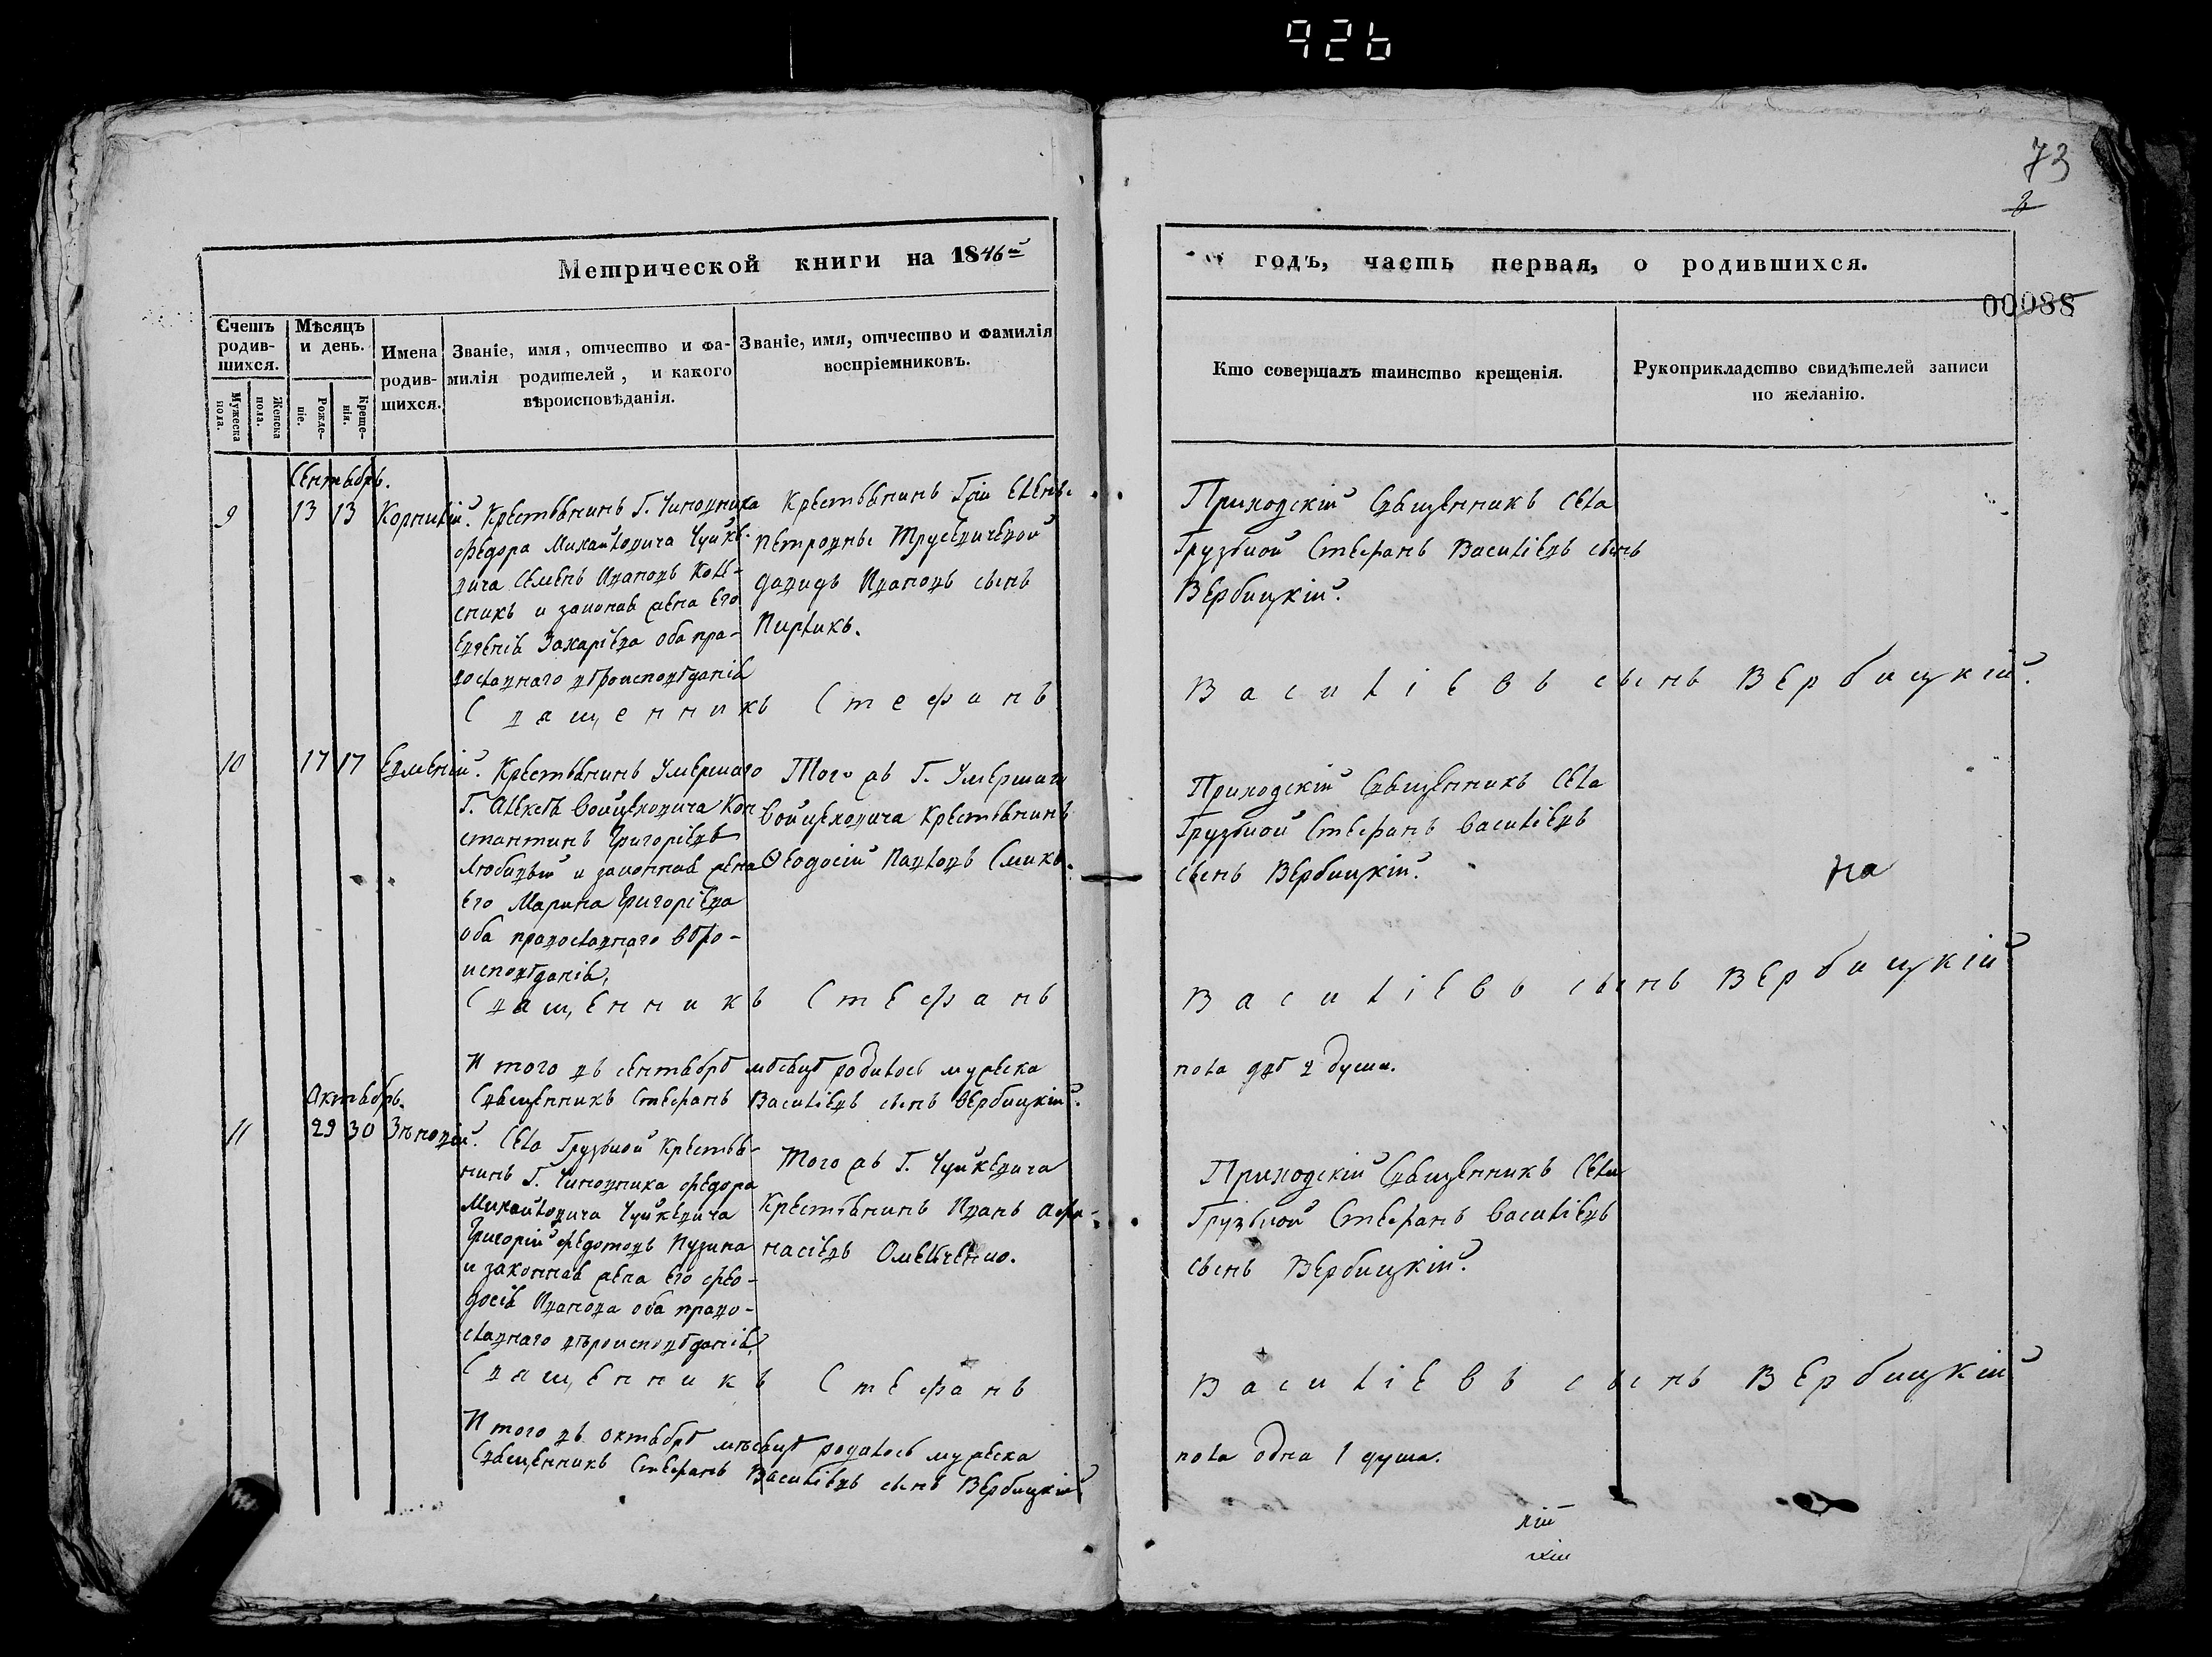 926
73
2
00088
Метрической книги на 1846й
годъ, часть первая, о родившихся.
Счетъ родив-шихся.
Мужеска пола.
Женска пола.
Мѣсяцъ и день.
Рожде-ніе.
Креще-нія.
Имена родив-шихся.
Званіе, имя, отчество и фа-
милія родителей, и какого
вѣроисповѣданія.
Званіе, имя, отчество и фамилія
воспріемниковъ.
Кто совершалъ таинство крещенія.
Рукоприкладство свидѣтелей записи
по желанію.
Сентябрь.
9 13 13 Корнилій.
Крестьянинъ Г. Чиновника
Федора Михайловича Чуйке-
вича Семенъ Ивановъ Коле-
сникъ и законая жена его
Евгенія Захаріева оба пра-
вославнаго вѣроисповѣданія
Крестьянинъ Гжи Елены
Петровны Трусевичевой
Давидъ Ивановъ сынъ
Пирликъ.
Приходскій Священникъ села
Грузкой Стефанъ Василіевъ сынъ
Вербицкій.
Священникъ Стефанъ
Василіевъ сынъ Вербицкій.
10 17 17 Евменій.
Крестьянинъ Умершаго
Г. Алексѣя Войцеховича Кон
стантинъ Григоріевъ
Любивый и законная жена
его Марина Григоріева
оба православнаго вѣро-
исповѣданія,
Того жъ Г. Умершаго
Войцеховича Крестьянинъ
Ѳеодосій Павловъ Смикъ.
Приходскій Священникъ села
Грузкой Стефанъ Василіевъ
сынъ Вербицкій.
на
Священникъ Стефанъ
Василіевъ сынъ Вербицкій
И того въ сентябрѣ мѣсяцѣ родилось мужеска
пола двѣ 2 души.
Священникъ Стефанъ Василіевъ сынъ Вербицкій.
Октябрь.
11 29 30 Зѣновій.
Села Грузкой Крестья-
нинъ Г. Чиновника Федора
Михайловича Чуйкевича
Григорій Федотовъ Пузина
и законная жена его Фео-
досія Иванова оба право-
славнаго вѣроисповѣданія,
Того жъ Г. Чуйкевича
Крестьянинъ Иванъ Афа-
насіевъ Омельченко.
Приходскій Священникъ села
Грузкой Стефанъ Василіевъ
сынъ Вербицкій.
Священникъ Стефанъ
Василіевъ сынъ Вербицкій
И того въ октябрѣ мѣсяцѣ родилось мужеска
пола одна 1 душа.
Священникъ Стефанъ Василіевъ сынъ Вербицкій